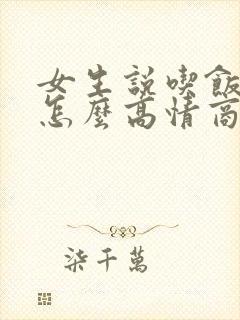 女生説喫飯
怎麼高情商
柒千萬